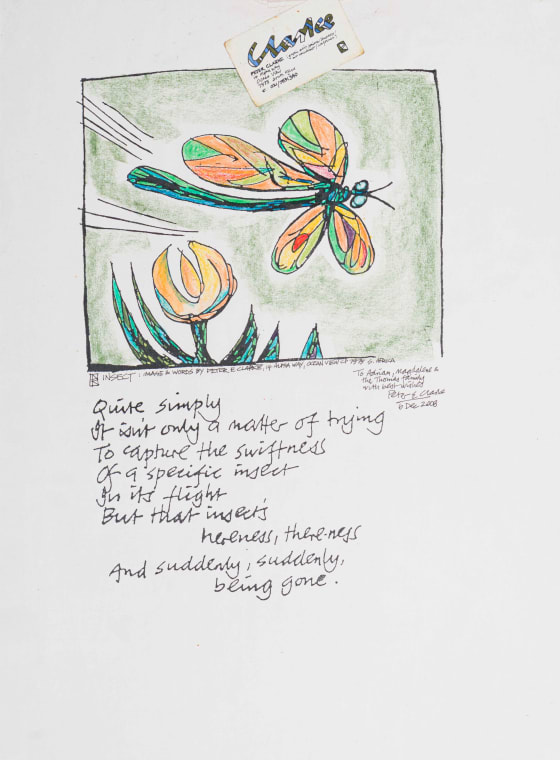 Clarke
PETER CLARKE
INSECT | IMAGE & WORDS BY PETER E. CLARKE, 14 ALPHA WAY, OCEAN VIEW CT 7975 S. AFRICA
To Adrian, Magdalene &
the Thomas family
with best wishes
Peter E. Clarke
6 DEC 2008
Quite simply
It isn't only a matter of trying
To capture the swiftness
Of a specific insect
In its flight
But that insect's
hereness, there-ness
And suddenly, suddenly,
being gone.